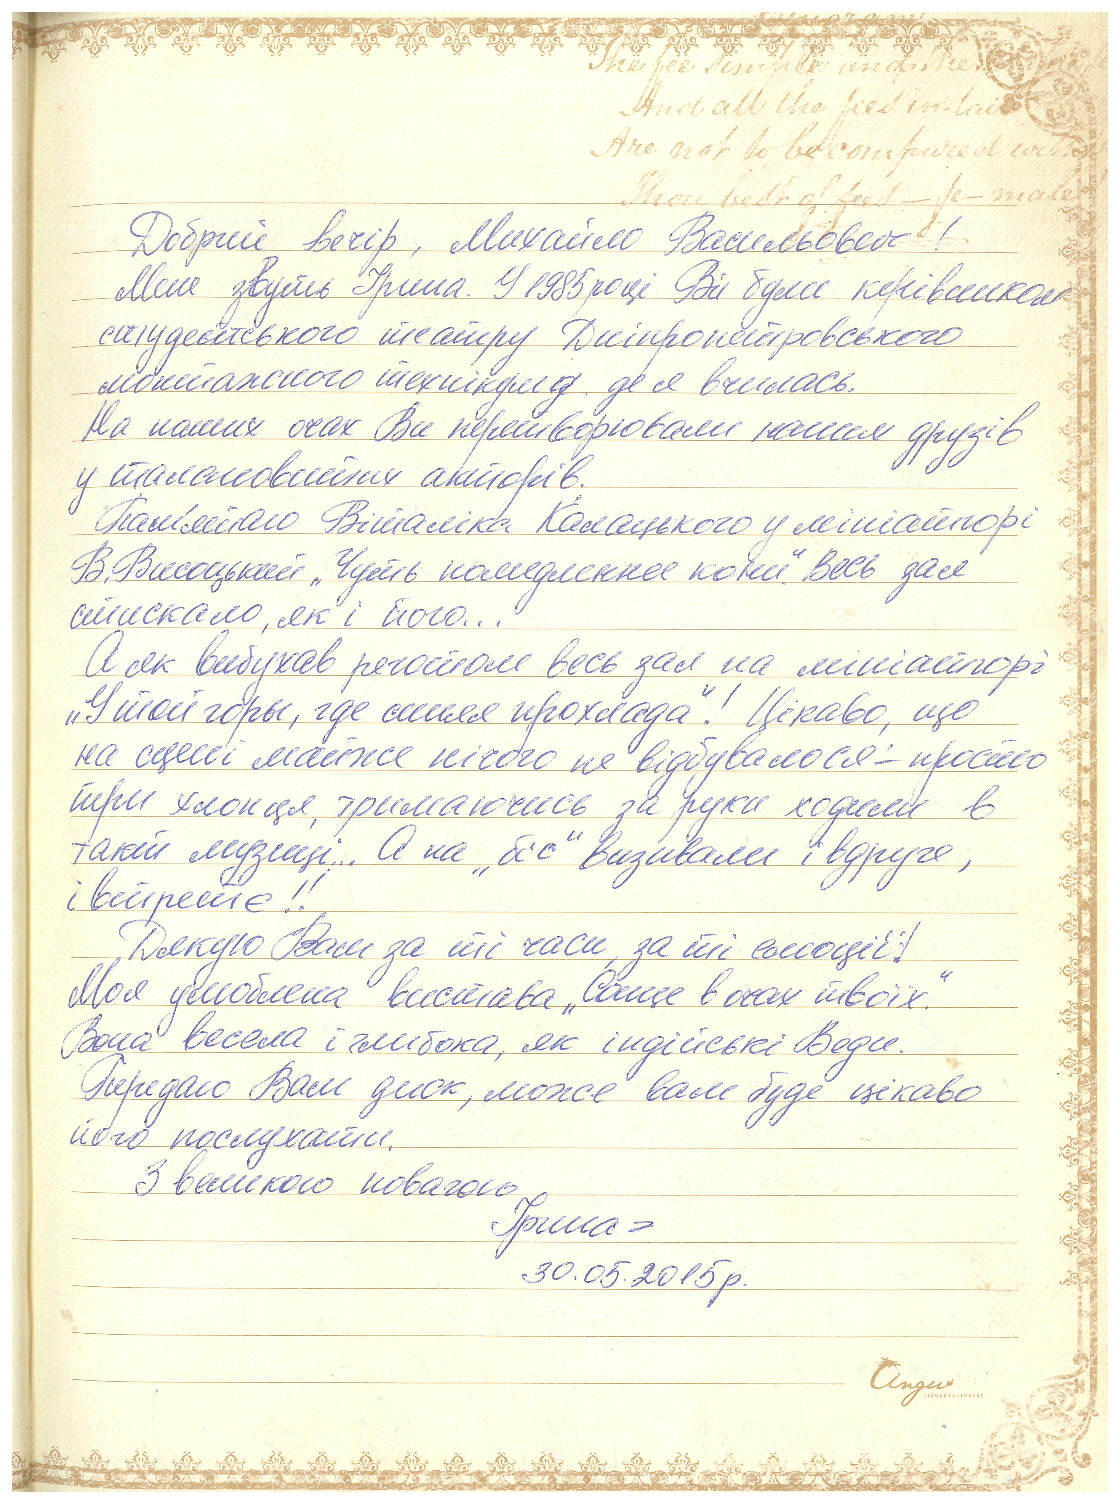 The fee simple and the
And all the fees in-tail
Are not to be compared with
Thou best of fees - fe-male
Добрий вечір, Михайло Васильович!
Мене звуть Ірина. У 1985 році Ви були керівником
студентського театру Дніпропетровського
монтажного технікуму де я вчилась.
На наших очах Ви перетворювали наших друзів
у талановитих акторів.
Пам'ятаю Віталіка у мініатюрі
В. Висоцький „Чуть помедленнее кони". Весь зал
стискало, як і його...
А як вибухав реготом весь зал на мініатюрі
„У той горы, где синяя прохлада"! Цікаво, що
на сцені майже нічого не відбувалося - просто
три хлопця, тримаючись за руки ходили в
такт музиці... А на „біс" визивали і вдруге,
і втретє!!
Дякую Вам за ті часи, за ті емоції!
Моя улюблена вистава „Сонце в очах твоїх".
Вона весела і глибока, як індійські Веди.
Передаю Вам диск, може вам буде цікаво
його послухати.
З великою повагою
Ірина
30.05.2015р.